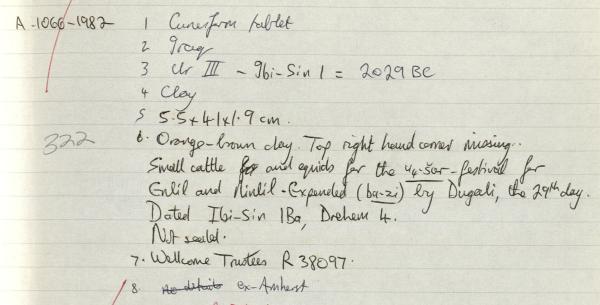 A-1066-1982 1 Cuneiform tablet
2 Iraq
3 Ur III - Ibi-Sin 1 = 2029 BC
4 Clay
5 5.5 x 4.1 x 1.9 cm.
322 6. Orange-brown clay. Top right hand corner missing.
Small cattle and equids for the u₄-šar-festival for
Enlil and Ninlil - Expended (ba-zi) by Dugali, the 29th day.
Dated Ibi-Sin 1Ba, Drehem 4.
Not sealed.
7. Wellcome Trustees R 38097.
8. no details ex-Amherst